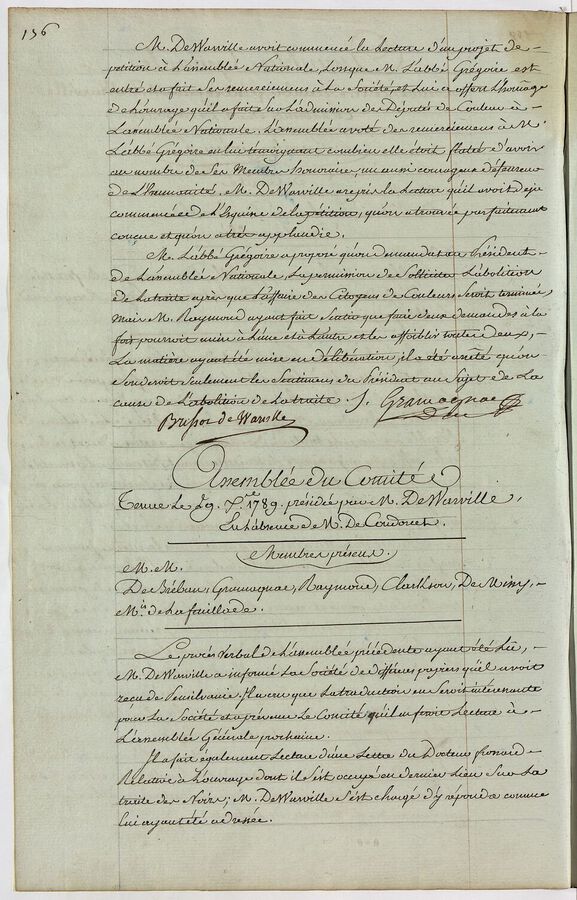 136
M. DeWarville avoit commencé la Lecture d'un projet de
petition à L'assemblée Nationale, Lorsque M. L'abbé Grégoire est
entré et a fait ses remerciemens à La Société, et Lui a offert Lhomage
de L'ouvrage qu'il a fait sur L'admission de Députés de Couleur à
L'assemblée Nationale. L'assemblée a voté des remerciemens à M.
L'abbé Grégoire en lui temoignant combien elle étoit flattée d'avoir
au nombre de Ses Membres honoraires, un aussi courageux défenseur
de L'Humanité. M. DeWarville a repris la Lecture qu'il avoit deja
commencée de L'Esquisse de la pétition, qu'on a trouvée parfaitement
concue et qu'on a très applaudie.
M. L'abbé Grégoire a proposé qu'on demandat au Président
de L'assemblée Nationale, La permission de Solliciter L'abolition
de La traite après que L'affaire des Citoyens de Couleurs Seroit terminée
Mais M. Raymond ayant fait Sentir que faire deux demandes à la
fois pourroit nuire à L'une et à L'autre et les affoiblir toutes deux,
La matière ayant été mise en délibération, il a été arrêté qu'on
Sonderoit Seulement les Sentimens du Président au Sujet de La
cause de L'abolition de La traite. J. Gramagnac
Brissot de Warville
Assemblée du Comité
Tenue Le 29. Xbre. 1789. présidée par M. DeWarville,
En L'absence de M. De Condorcet.
Membres présens.
M. M.
De Bréban, Gramagnac, Raymond, Clarkson, De Missy,
Mis. de La feuillade.
Le procès Verbal de L'assemblée précédente ayant été Lu,
M. DeWarville a informé La Société de différens papiers qu'il avoit
recu de Pensilvanie. Il a cru que La traduction en Seroit intéressante
pour La Société et a prévenu Le Comité qu'il en feroit Lecture à
L'assemblée Générale prochaine.
Il a fait également Lecture d'une Lettre du Docteur frossard
Relative à L'ouvrage dont il S'est occupé en dernier Lieu Sur La
traite des Noirs; M. DeWarville S'est chargé d'y répondre comme
Lui ayant été adressée.